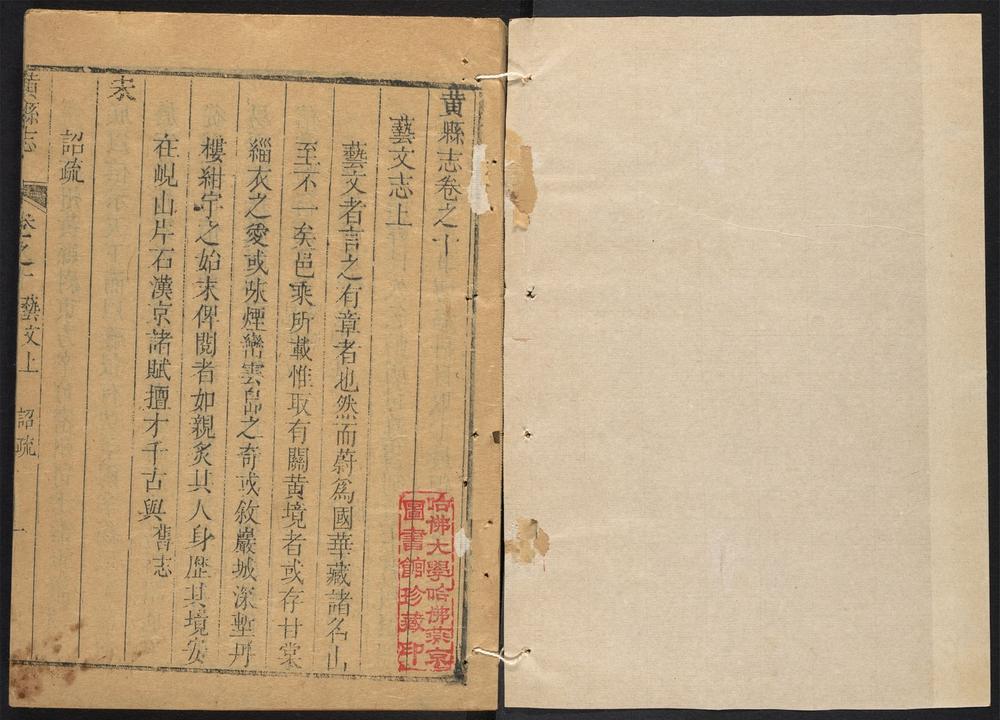 黃縣志卷之十
藝文志上
藝文者言之有章者也然而蔚爲國華藏諸名山
至不一矣邑乘所載惟取有關黃境者或存甘棠
緇衣之愛或咏煙巒雲島之奇或敘巖城深塹丹
樓紺宇之始末俾閱者如親炙其人身歷其境安
在峴山片石漢京諸賦擅才千古與舊志
宋
詔疏
黃縣志
卷之十
藝文上
詔疏
一
哈佛大學哈佛燕京
圖書館珍藏印